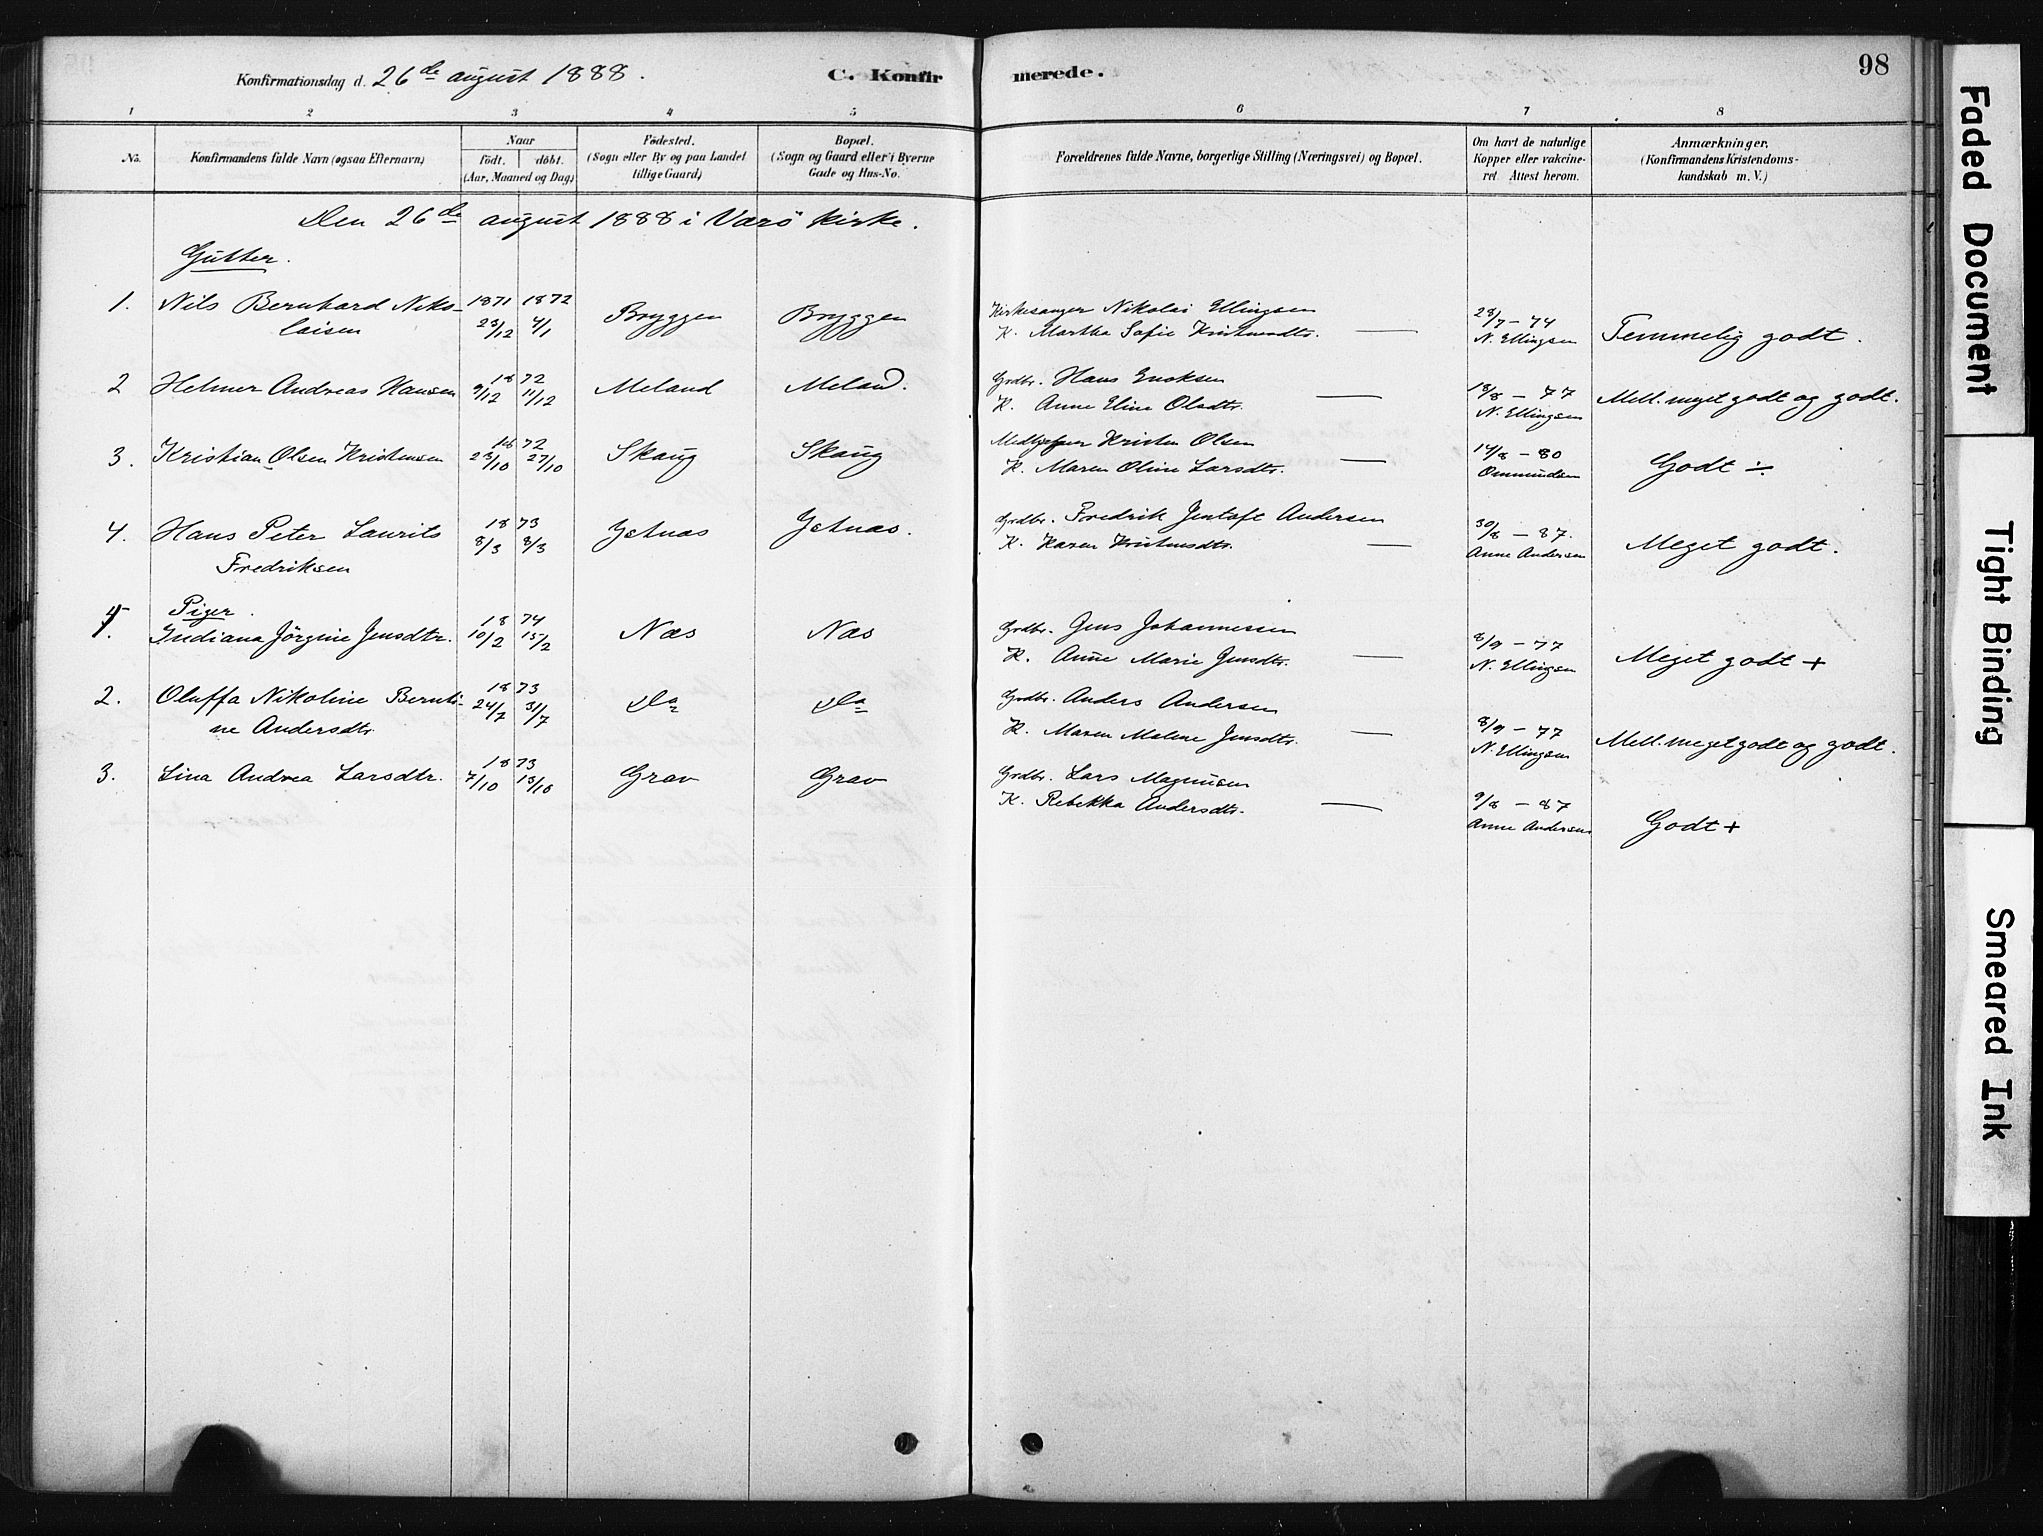 Konfirmationsdag d. 26de august 1888.
C. Konfirmerede.
98
1 2 3 4 5 6 7 8
No.
Konfirmandens fulde Navn (ogsaa Efternavn)
Naar
født. døbt.
(Aar, Maaned og Dag)
Fødested.
(Sogn eller By og paa Landet
tillige Gaard)
Bopæl.
(Sogn og Gaard eller i Byerne
Gade og Hus-No.
Forældrenes fulde Navne, borgerlige Stilling (Næringsvei) og Bopæl.
Om havt de naturlige
Kopper eller vakcine-
ret. Attest herom.
Anmærkninger.
(Konfirmandens Kristendoms-
kundskab m. V.)
Den 26de august 1888 i Værö kirke.
Gutter.
1. Nils Bernhard Niko- 1871 1872 Bryggen Bryggen Kirkesanger Nikolai Ellingsen 28/7 - 74
laisen 23/12 4/1 K. Martha Sofie — N. Ellingsen Temmelig godt.
2 Helmer Andreas Hansen 1872 9/12 11/12 Meland Meland. Grdbr. Hans Enoksen 18/8 - 77 Mell. meget godt og godt.
K. Anne Eline Olsdtr. — N. Ellingsen
3. Kristian Olsen Kristensen 1872 23/10 27/10 Skaug Skaug Kristen Olsen 14/8 - 80
K. Maren Oline Larsdtr. — Ommundsen Godt ÷
4. Hans Peter Laurits 1873 8/3 8/3 Grdbr. Fredrik Jentoft Andersen 30/8 - 87.
Fredriksen K. Karen — Anne Andersen Meget godt.
Piger.
1. Indiana Jörgine Jensdtr. 1874 10/2 15/2 Næs Næs Grdbr. Jens Johannessen 8/9 - 77
K. Anne Marie Jensdtr. — N. Ellingsen Meget godt +
2. Oluffa Nikoline Bernti- 1873 24/7 31/7 Do Do Grdbr. Anders Andersen 8/9 - 77
ne Andersdtr. K. Maren Malene Jensdtr. — N. Ellingsen Mell. meget godt og godt.
3. Lina Andrea Larsdtr. 1873 7/10 13/10 Grav Grav Grdbr. Lars Magnusen 9/8 - 87
K. Rebekka Andersdtr. — Anne Andersen Godt +
Faded Document
Tight Binding
Smeared Ink